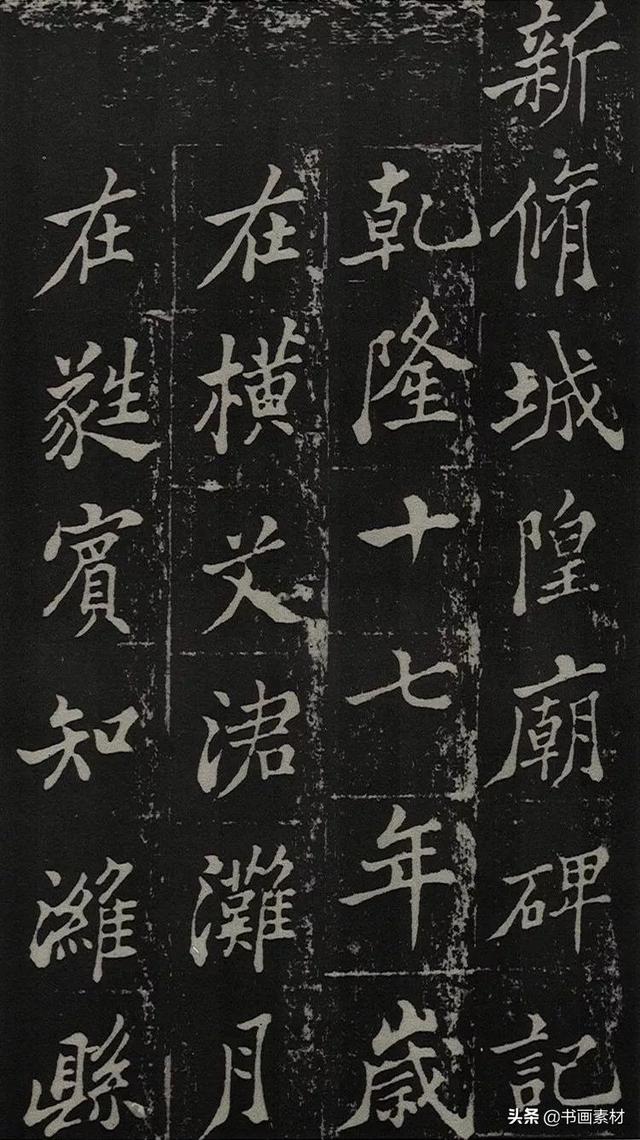 新脩城隍廟碑記
乾隆十七年歲
在橫艾涒灘月
在蕤賓知濰縣
头条 @书画素材